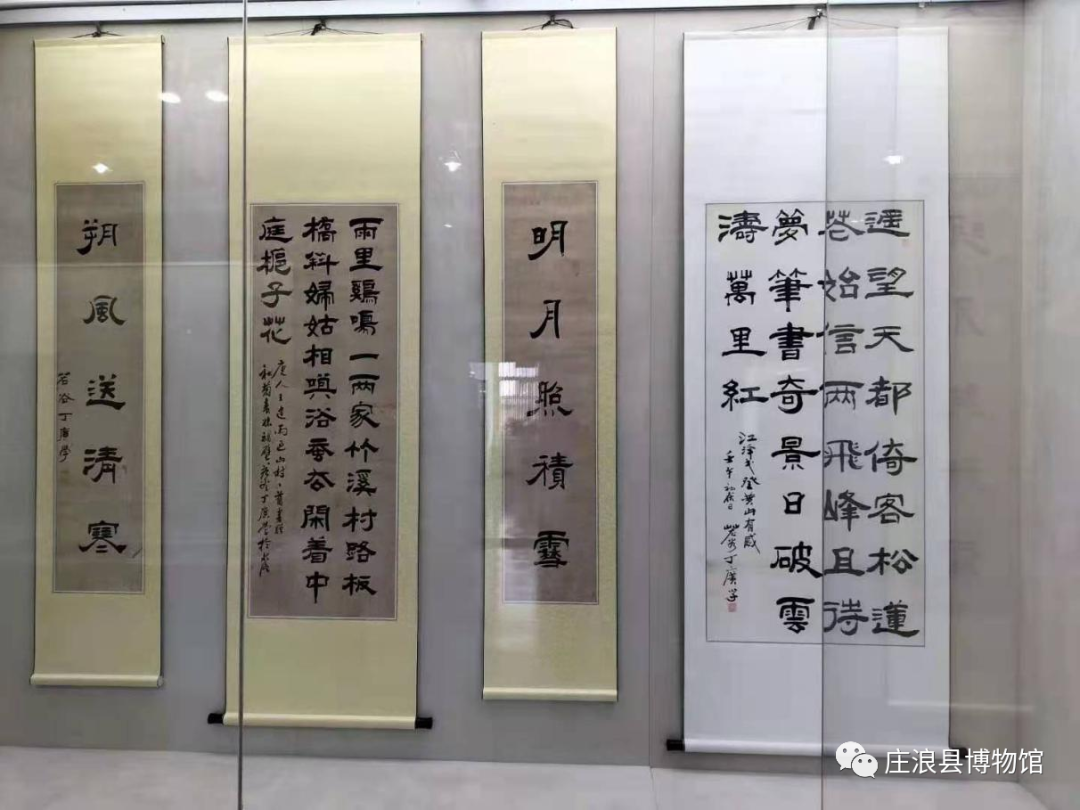 遥望天都倚客松蓮
花始信兩飛峰且待
夢筆書奇景日破雲
濤萬里紅
江泽民登黄山有感
壬午初 日 丁廣学
明月照積雪
雨里鷄鳴一兩家竹溪村路板
橋斜婦姑相喚浴蚕去閑着中
庭梔子花
唐人王建雨过山村一首
朔風送清寒
丁廣學
庄浪县博物馆